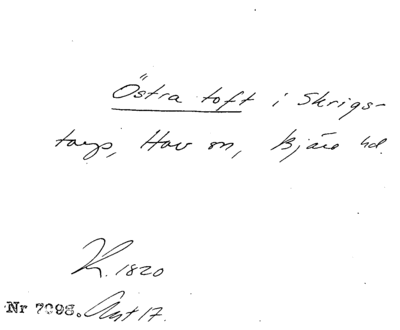 Östra toft i Skrigs-
torp, Hov sn, Bjäre hd.
K. 1820
Nr 7098. Ant 17.